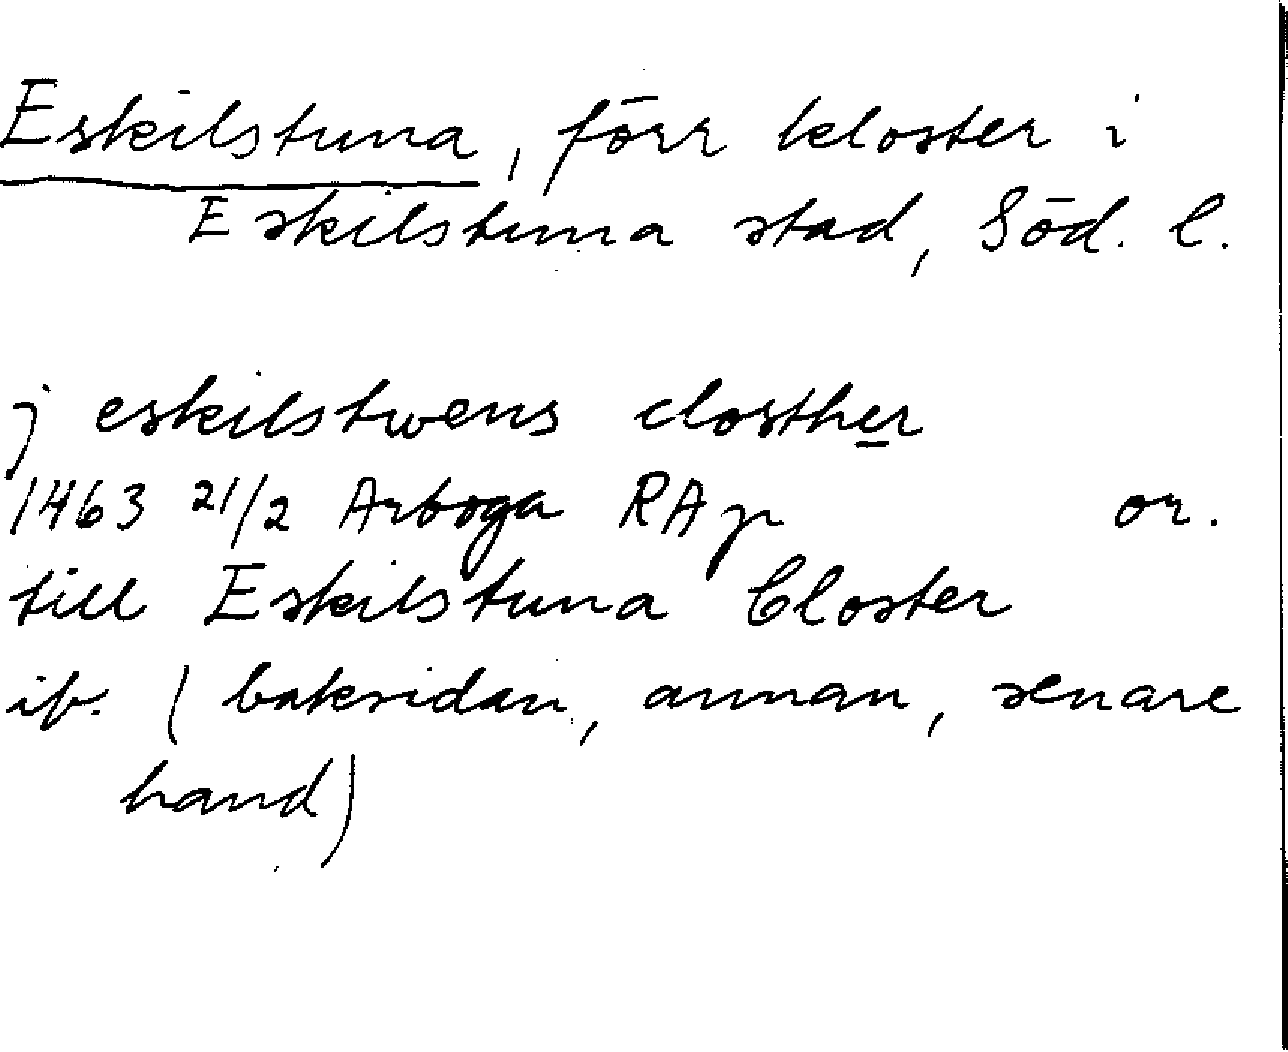 Eskilstuna, förr kloster i
Eskilstuna stad, Söd. l.
j eskilstwens closther
1463 21/2 Arboga RAp or.
till Eskilstuna Closter
ib. (baksidan, annan, senare
hand)